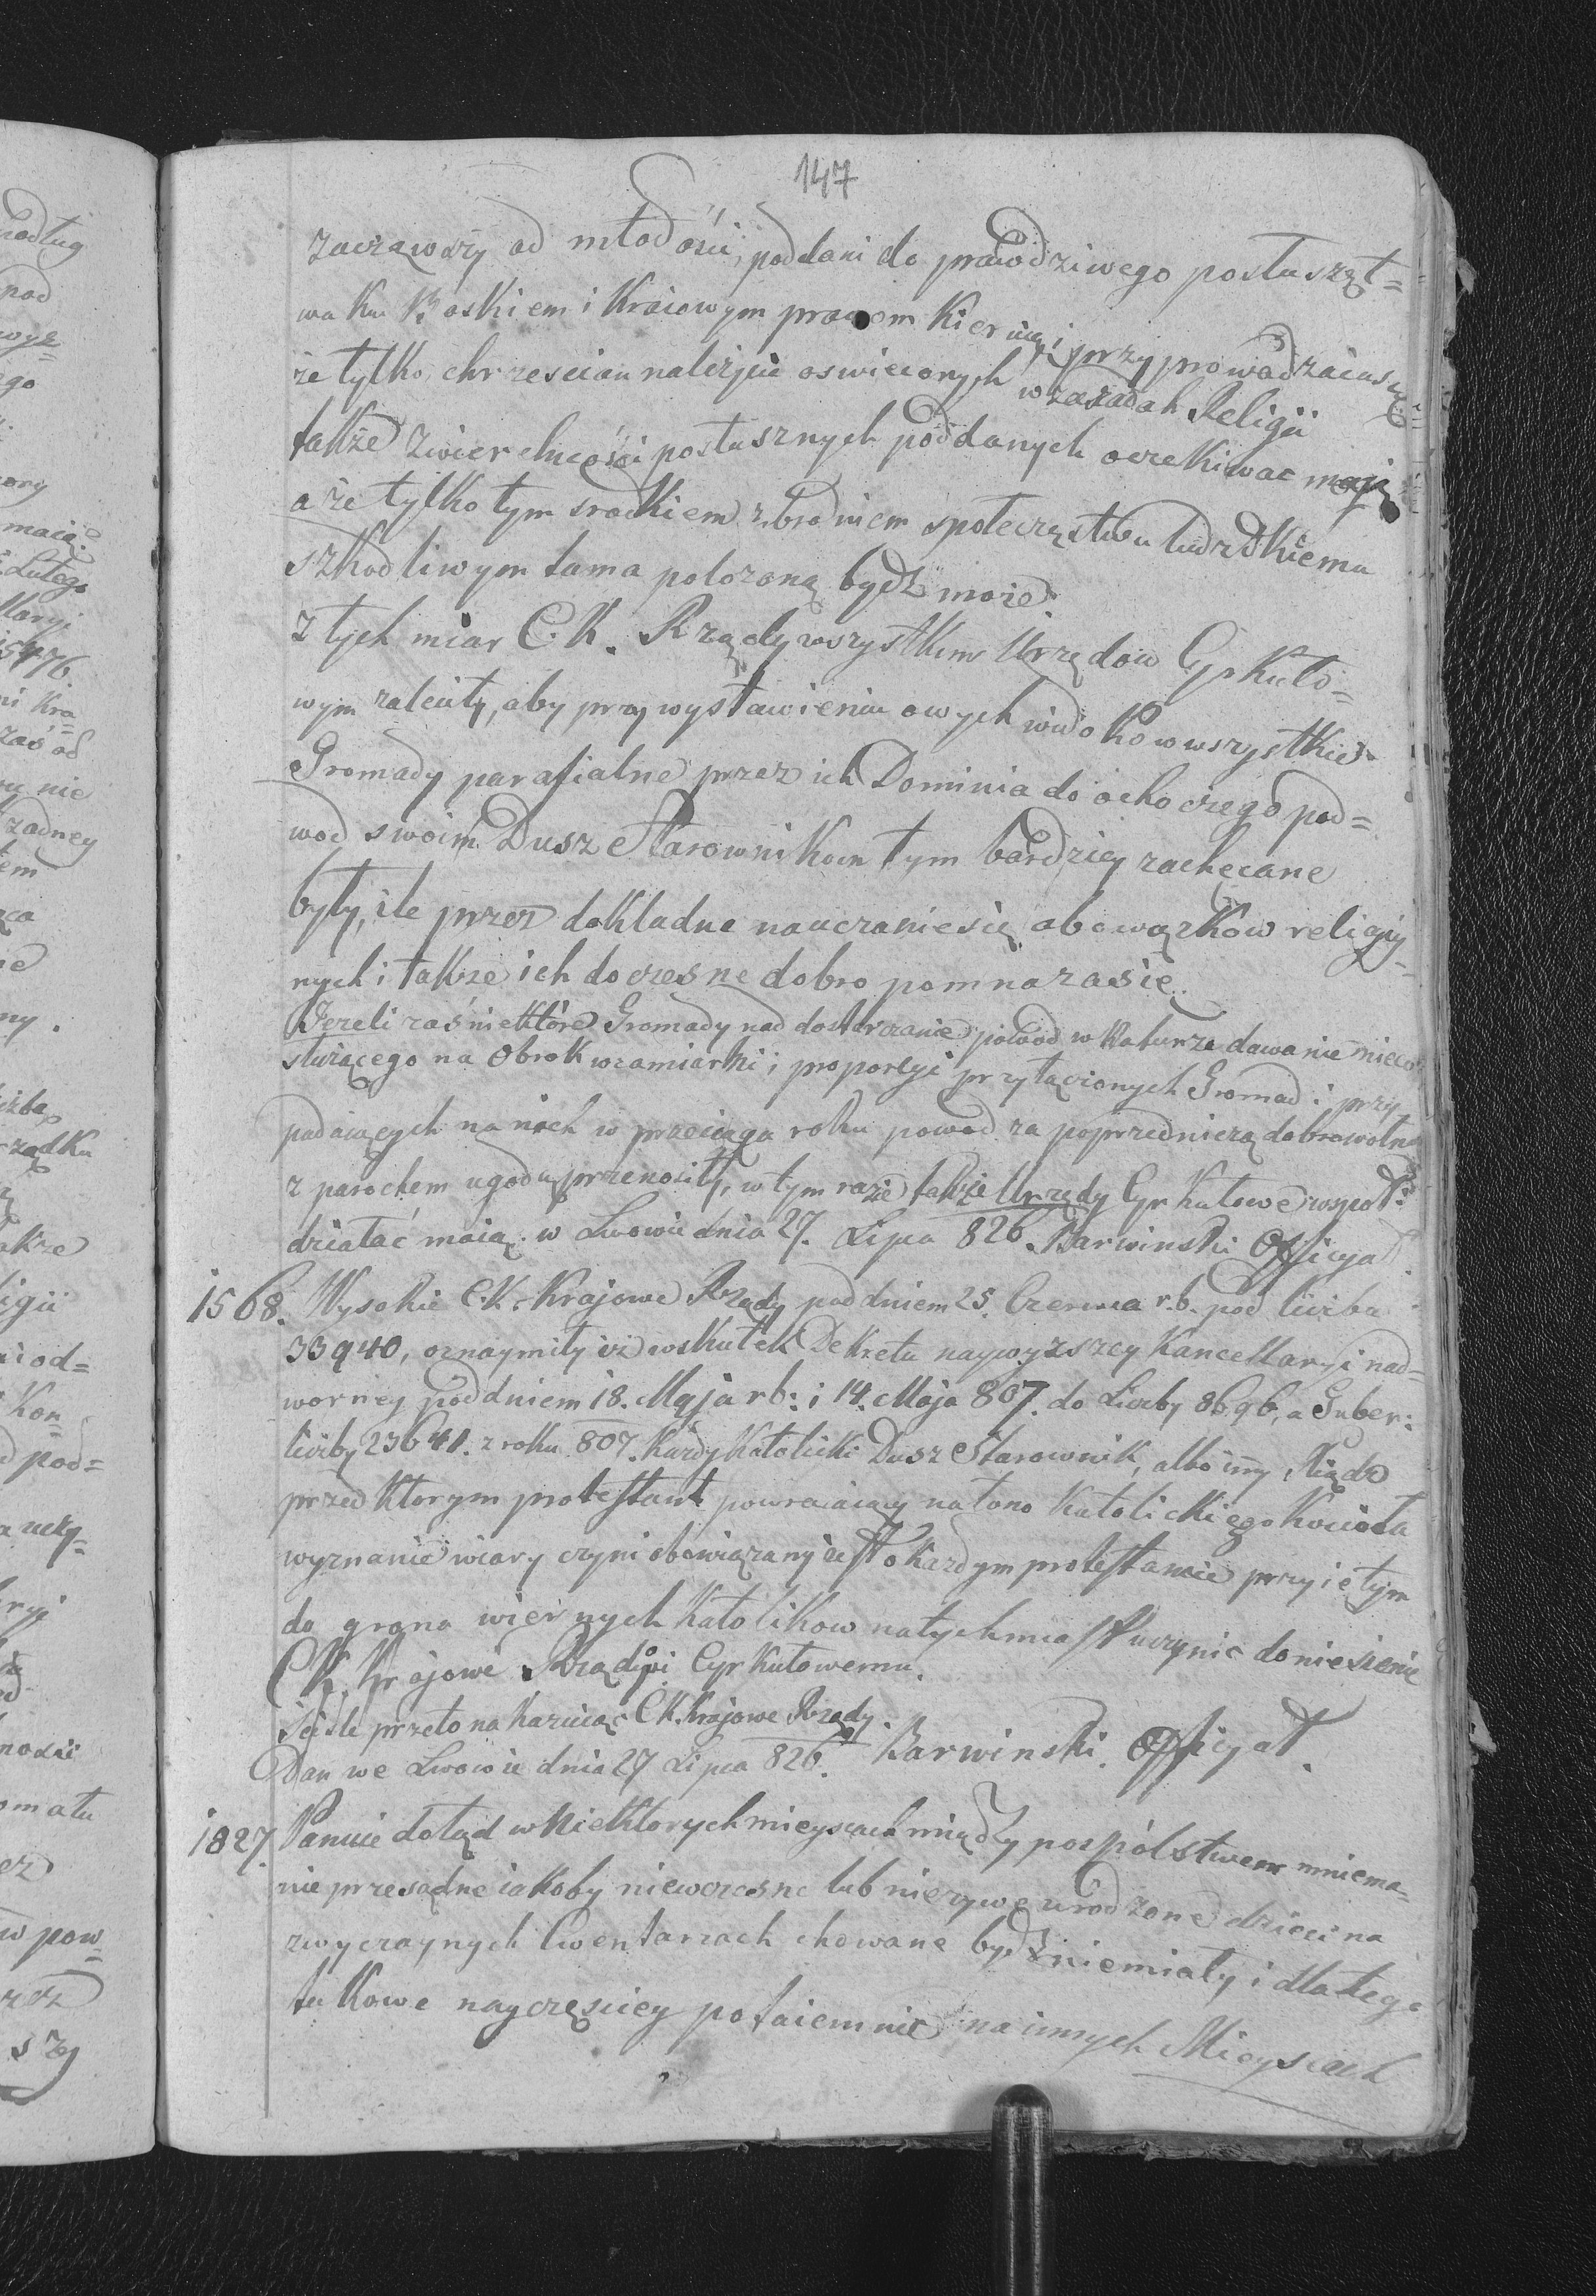 147
zacząwszy od młodości, poddani do prawodziwego posłuszęt=
wa ku Boskiem i Kraiowym prawom kieruią i przyprowadzaią się
że tylko chrzescian należycie oswieconych w zasadah Religii
także zwierchności posłusznych poddanych oczekiwac maią
a że tylko tym srodkiem zbrodniem społeczęstwu ludzkiemu
szkodliwym tama polozoną bydź może.
z tych miar C. K. Rządy wszystkim Urzędow Cyrkuło=
wym zaleciły, aby przy wystawieniu owych widokow wszystkie
Gromady parafialne przez ich Dominia do ochoczego pod=
wod swoim Dusz Starownikom tym bardziey zachęcane
były, ile przez dokładne nauczanie się obowązków religiy=
nych i także ich doczesne dobro pomnaza się.
Jezeli zaś niektóre Gromady nad dostarczanie powod w Naturze dawanie
służącego na Obrok w zamiarki i proporcyi przyłączonych Gromad i przy
padaiących na nich w przeciągu roku powod za poprzedniczą dobrowolną
z parochem ugodą przenosiły, w tym razie także Urzędy Cyrkułowe wspoł:
działać maią. w Lwowie dnia 27. Lipca 826. Barwinski Officyał.
1568. Wysokie C. K. Krajowe Rządy pod dniem 25. Czerwca r. b. pod liczba
33940, oznaymiły iż w skutek Dekretu naywyzszey Kancellaryi nad=
worney pod dniem 18. Maja rb: i 14. Maja 807. do Liczby 8696, a Guber:
liczby 23641. z roku 807. Każdy Katolicki Dusz Starownik, albo iny Xiądz
przed ktorym protestant powracaiący na łono Katolickiego Kościoła
wyznanie wiary czyni obowiązany iest o każdym protestancie przyiętym
do grona wiernych Katolikow natychmiast uczynic doniesienie
CK. Krajowe Rządowi Cyrkułowemu.
ściśle przeto nakazuiąc CK. Krajowe Rządy.
Dan we Lwowie dnia 27 Lipca 826. Barwinski. Officyał.
1827. Panuie dotąd w Niektorych mieyscach między pospólstwem mniema=
nie przesądne iakoby niewczesne lub niezywe urodzone dzieci na
zwyczaynych Cwentarzach chowane bydź niemiały i dlatego
takowe nayczęściey potaiemnie na innych Mieyscach